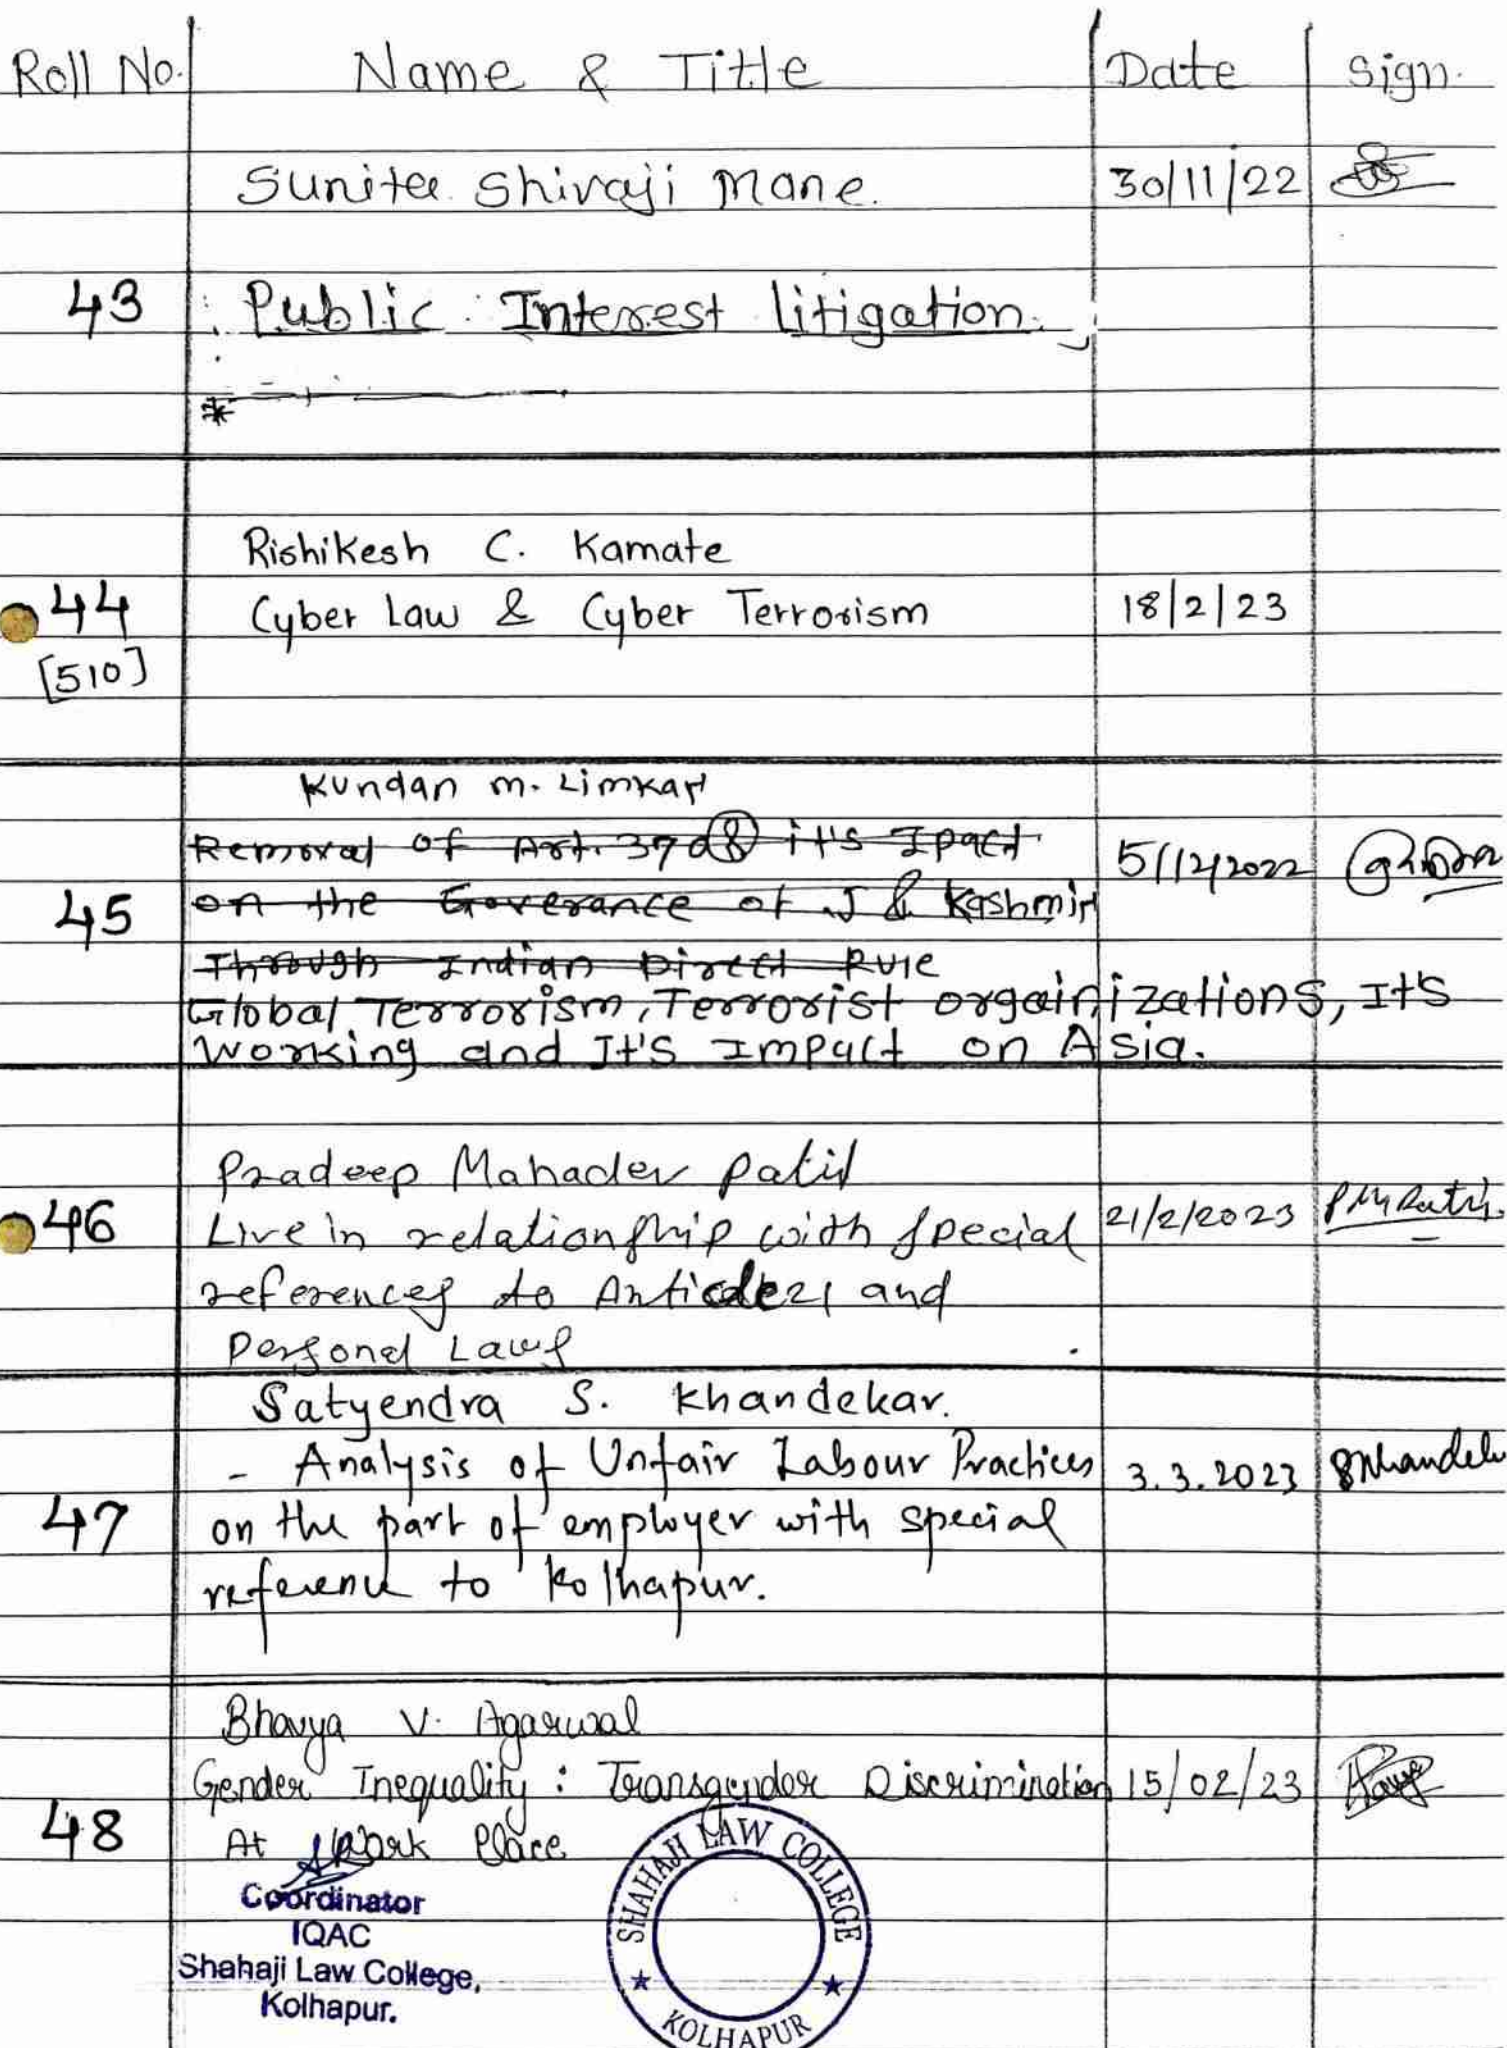 Roll No. Name & Title Date Sign.
Sunita Shivaji Mane. 30/11/22
43 Public Interest Litigation.
*
Rishikesh C. Kamate
44 Cyber Law & Cyber Terrorism 18/2/23
[510]
Kundan M. Limkar
Removal of Art. 370 & it's Ipact 5/12/2022
45 on the Goverance of J & Kashmir
Through Indian Direct Rule
Global Terrorism, Terrorist orgainizations, It's
working and It's Impact on Asia.
Pradeep Mahadev Patil
46 Live in relationship with special 21/2/2023 PMPatil.
references to Article 21 and
Personal Laws
Satyendra S. Khandekar.
- Analysis of Unfair Labour Practices 3.3.2023
47 on the part of employer with special
reference to Kolhapur.
Bhavya V. Agarwal
Gender Inequality : Transgender Discrimination 15/02/23
48 At Work Place
Coordinator
IQAC
Shahaji Law College,
Kolhapur.
SHAHAJI LAW COLLEGE
KOLHAPUR